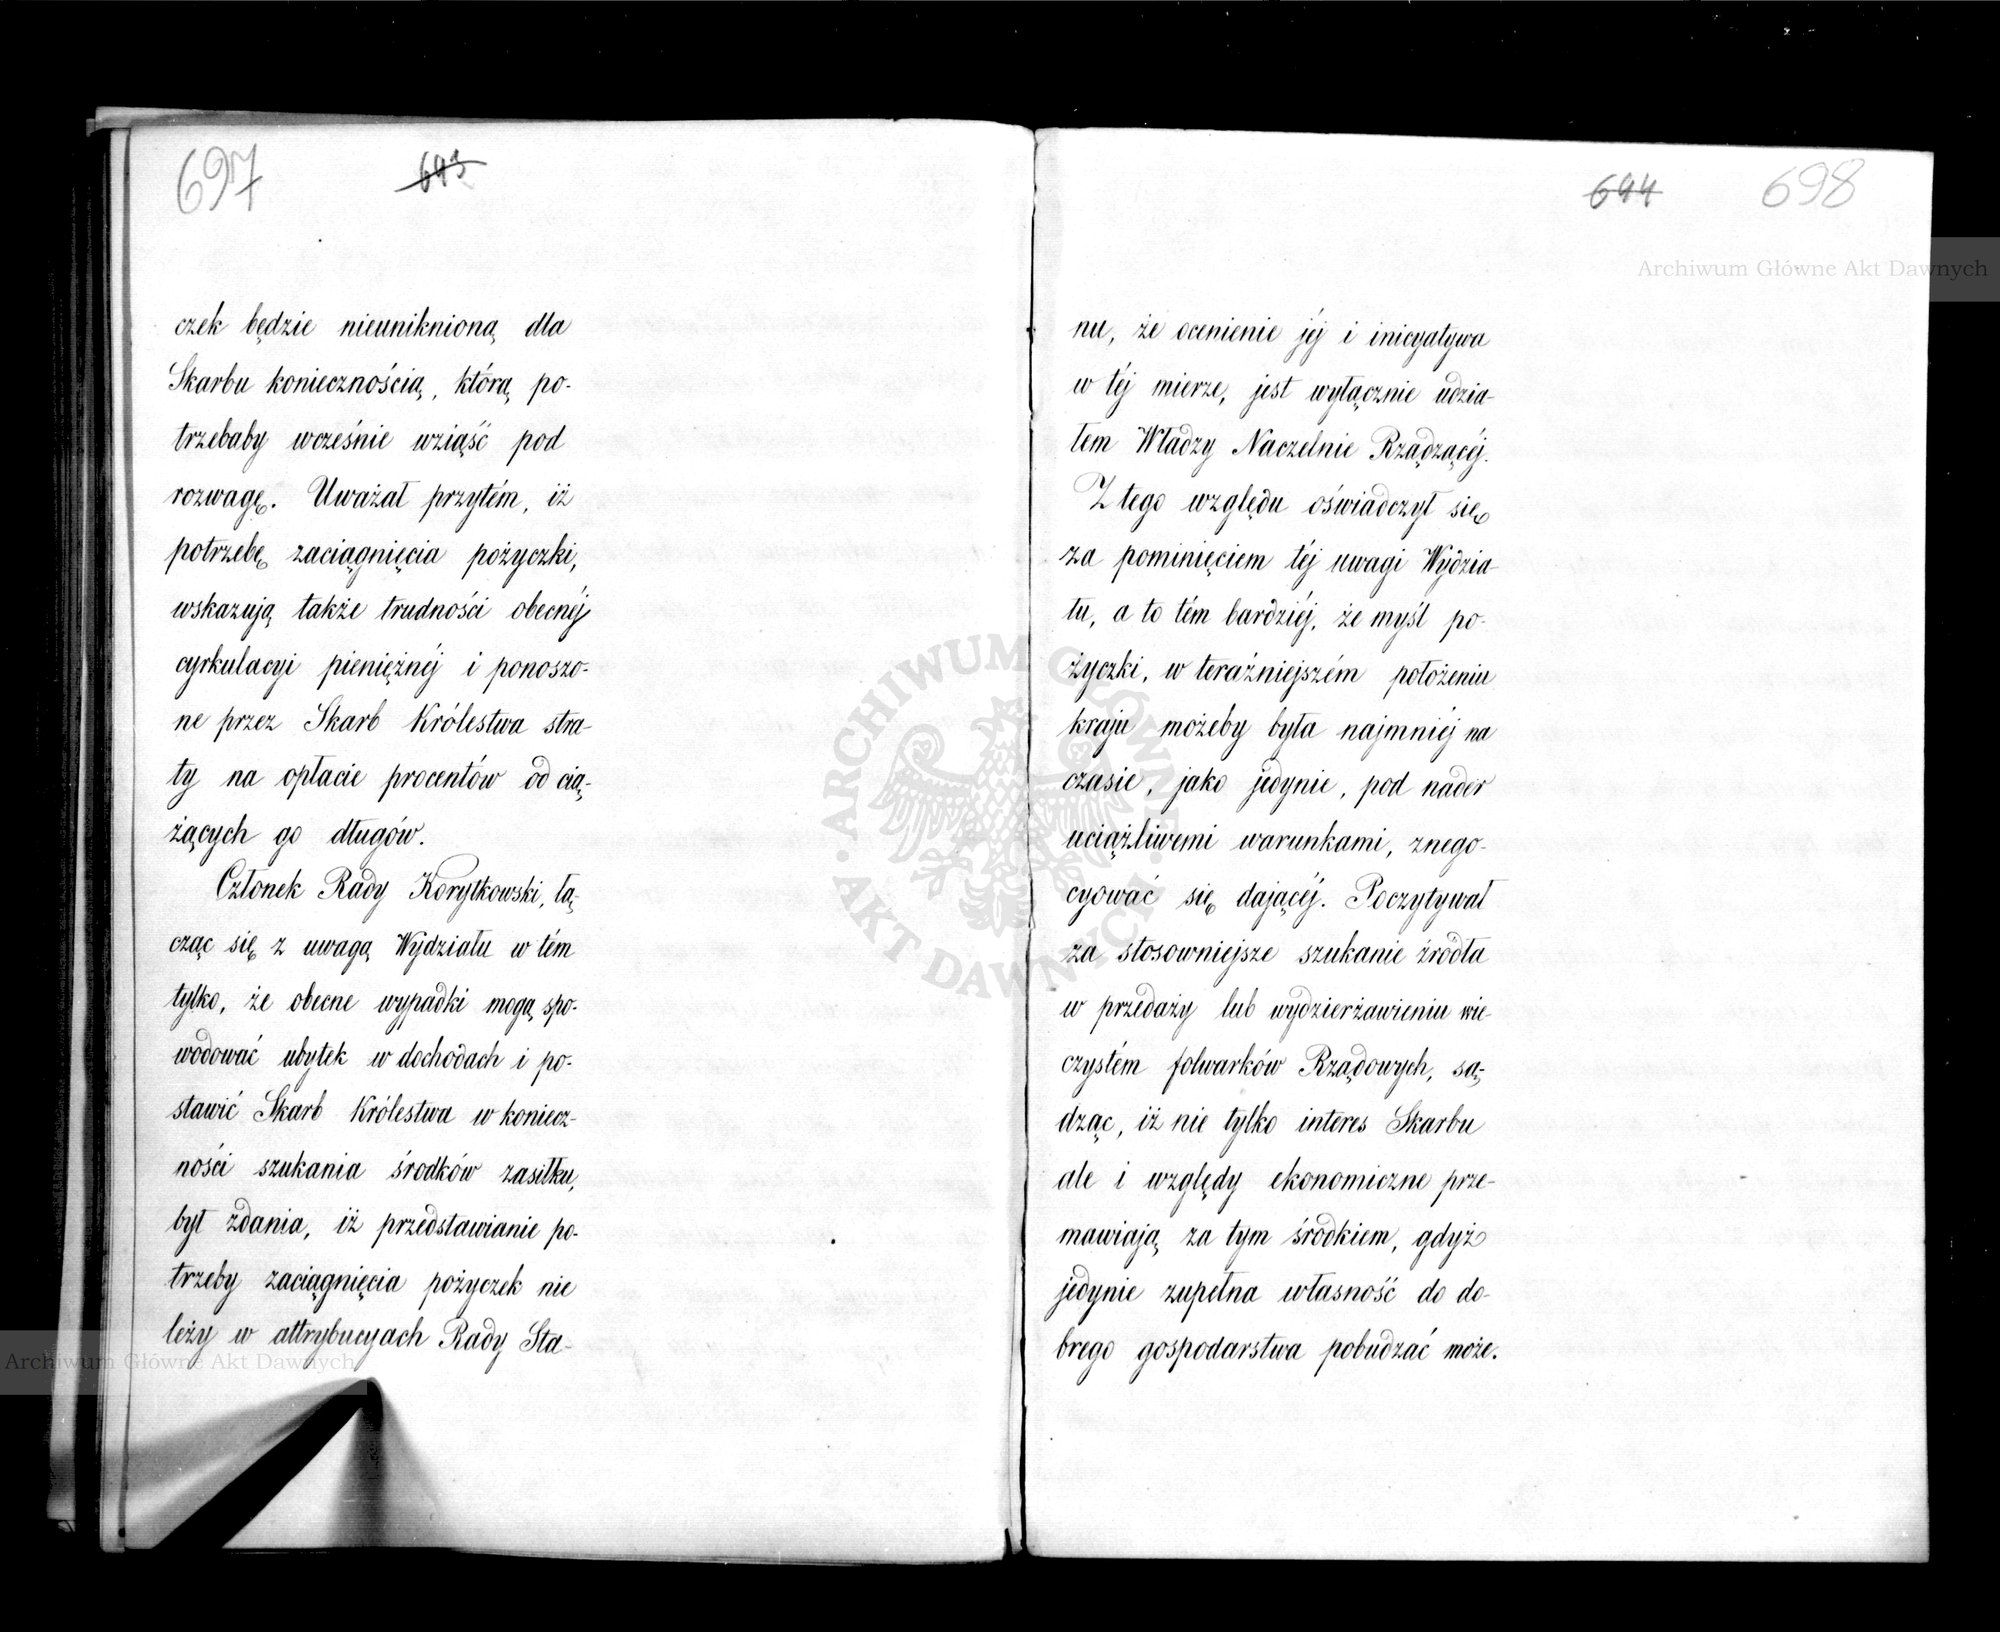 697 693
czek będzie nieuniknioną dla
Skarbu koniecznością, którą po-
trzebaby wcześnie wziąść pod
rozwagę. Uważał przytém, iż
potrzebę zaciągnięcia pożyczki,
wskazują także trudności obecnéj
cyrkulacyi pieniężnéj i ponoszo-
ne przez Skarb Królestwa stra-
ty na opłacie procentów od cią-
żących go długów.
Członek Rady Korytkowski, łą-
cząc się z uwagą Wydziału w tém
tylko, że obecne wypadki mogą spo-
wodować ubytek w dochodach i po-
stawić Skarb Królestwa w koniecz-
ności szukania środków zasiłku,
był zdania, iż przedstawianie po-
trzeby zaciągnięcia pożyczek nie
leży w attrybucyach Rady Sta-
694 698
nu, że ocenienie jéj i inicyatywa
w téj mierze, jest wyłącznie udzia-
łem Władzy Naczelnie Rządzącéj.
Z tego względu oświadczył się
za pominięciem téj uwagi Wydzia-
łu, a to tém bardziéj, że myśl po-
życzki, w teraźniejszém położeniu
kraju możeby była najmniéj na
czasie, jako jedynie, pod nader
uciążliwemi warunkami, znego-
cyować się dającéj. Poczytywał
za stosowniejsze szukanie źródła
w przedaży lub wydzierżawieniu wie-
czystém folwarków Rządowych, są-
dząc, iż nie tylko interes Skarbu
ale i względy ekonomiczne prze-
mawiają za tym środkiem, gdyż
jedynie zupełna własność do do-
brego gospodarstwa pobudzać może.
Archiwum Główne Akt Dawnych
ARCHIWUM GŁÓWNE AKT DAWNYCH
Archiwum Główne Akt Dawnych